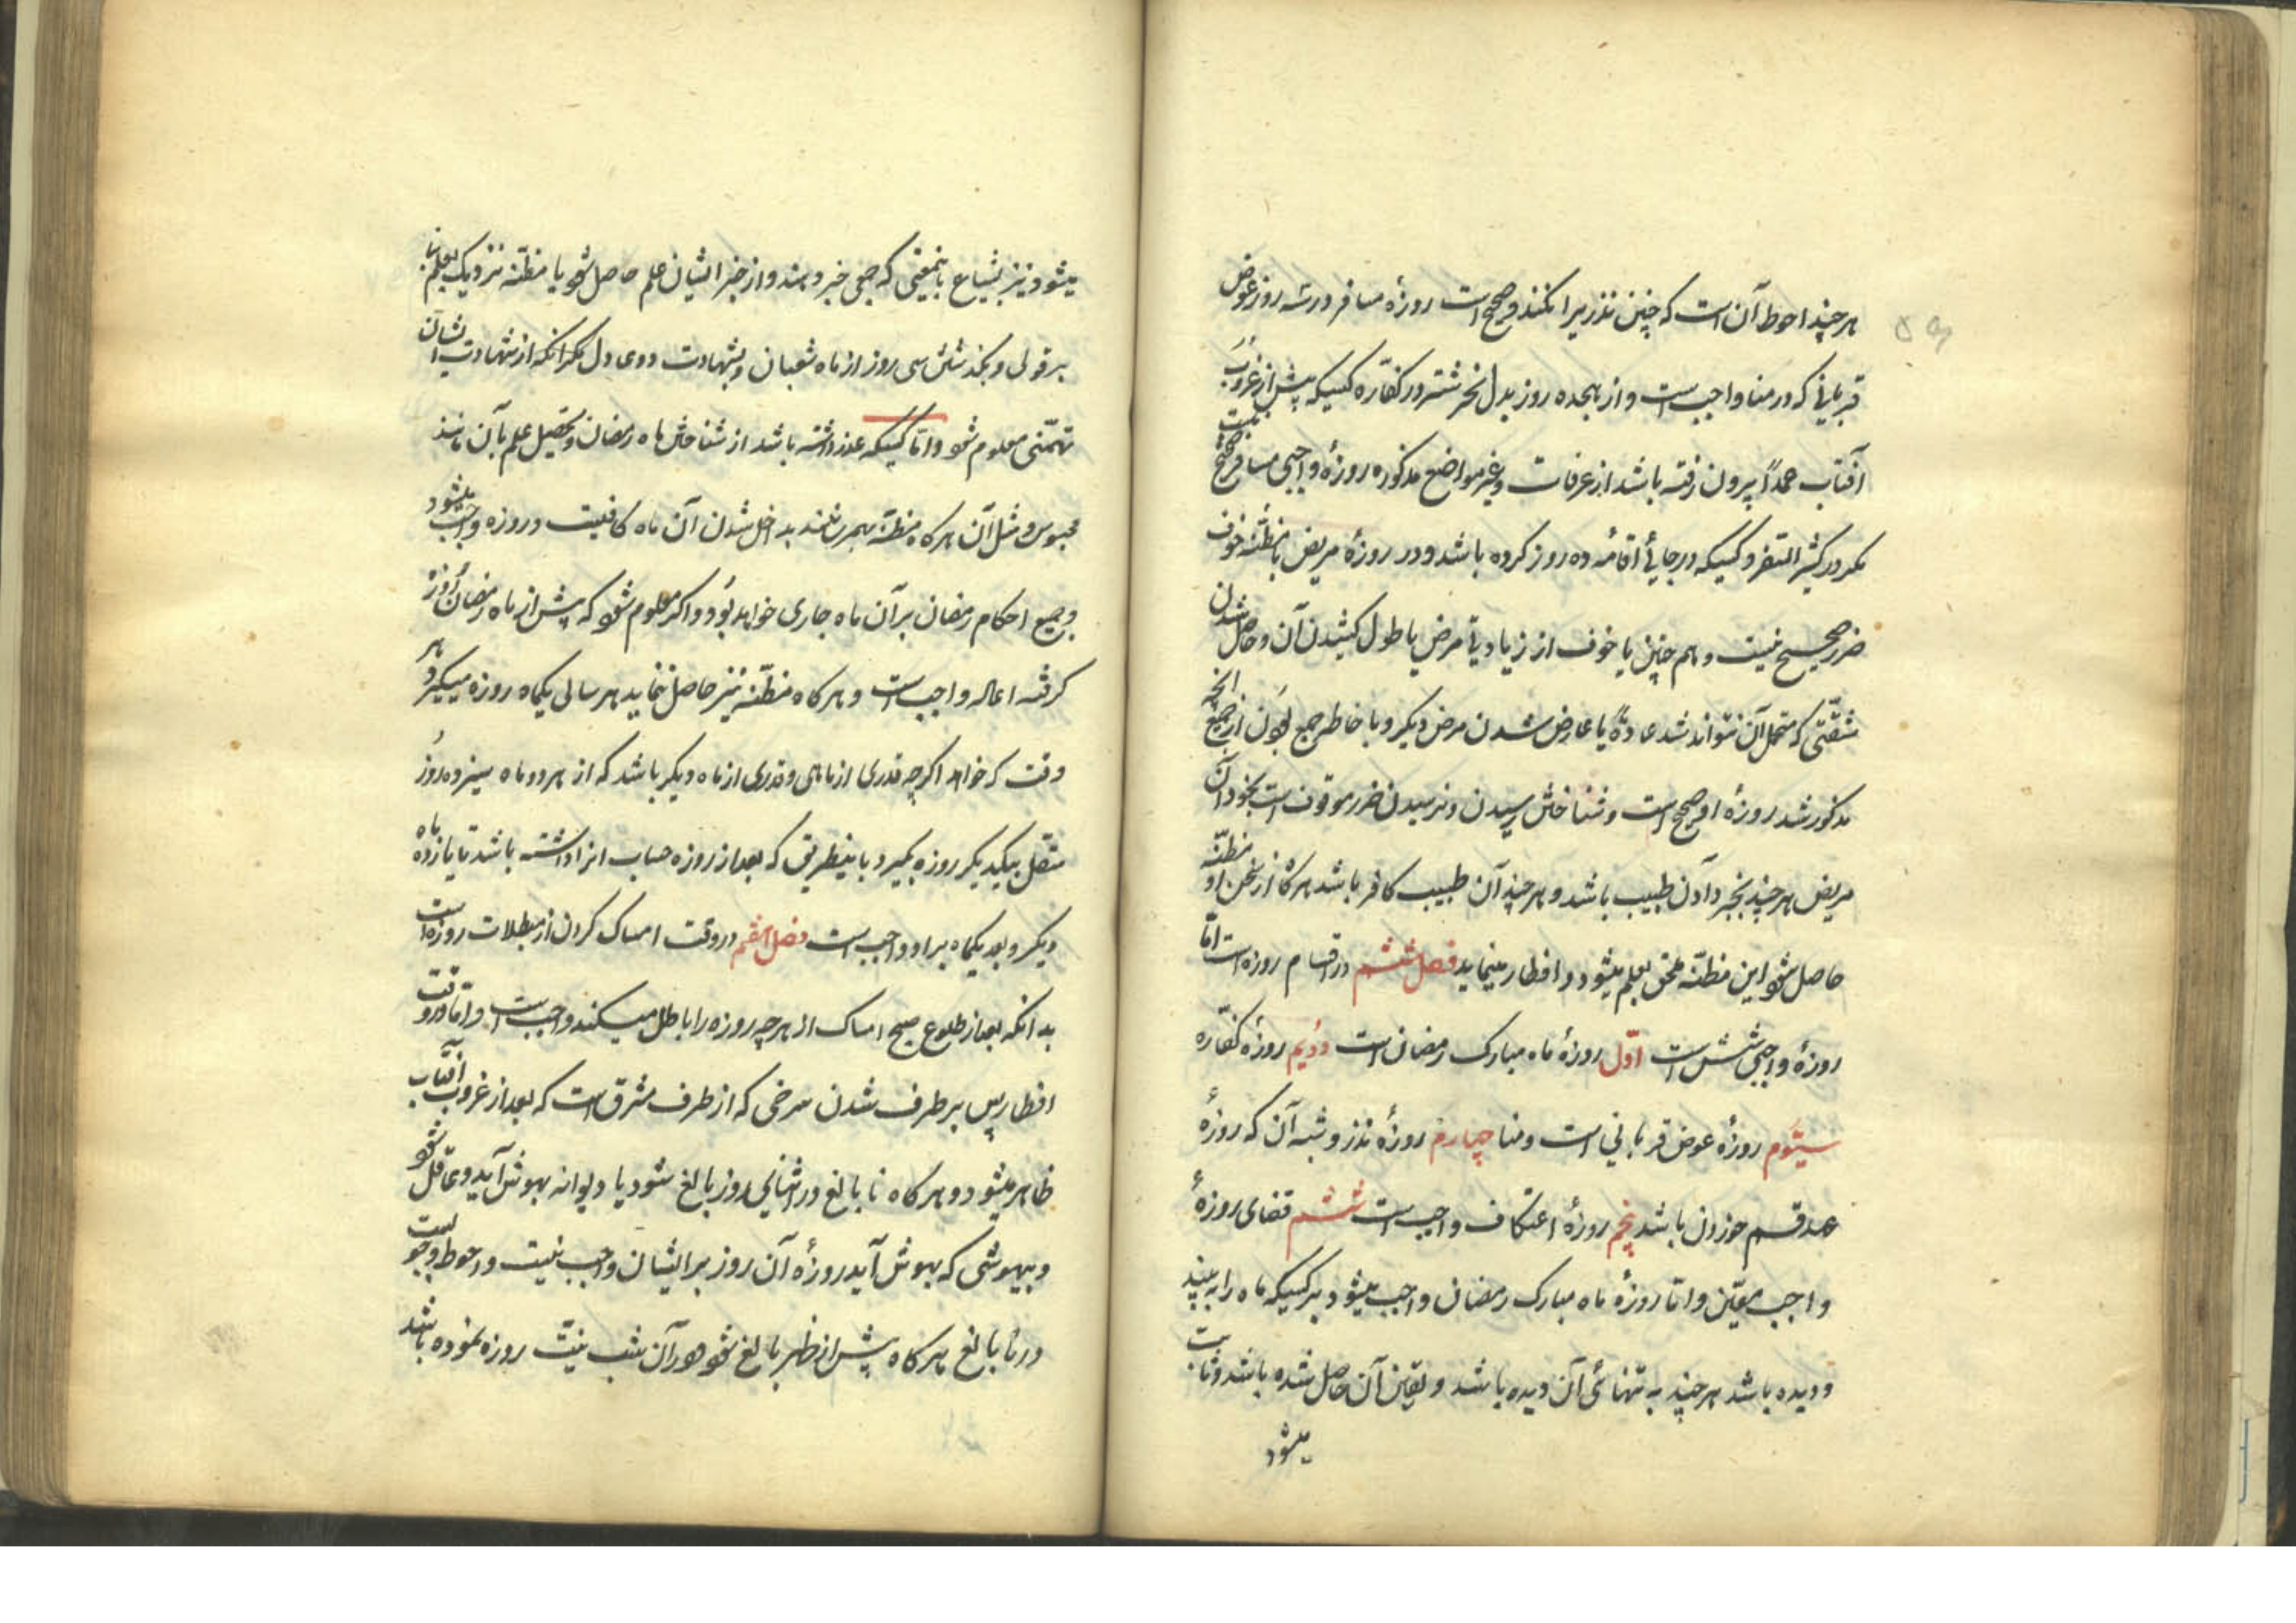 هر چند احوط آن است که چنین نذر یرا نکنند و صحیح است روزهٔ مسافر در سه روز عوض
قربانی که در منا واجب است و از هجده روز بدل نحر شتر در کفّاره کسیکه پیش از غروب
آفتاب عمداً بیرون رفته باشد از عرفات و غیر مواضع مذکوره روزهٔ واجبی مسافر صحیح نیست
مکر در کثیر السّفر و کسیکه در جائی أقامهٔ ده روز کرده باشد و در روزهٔ مریض با مظنّه خوف
ضرر صحیح نیست و هم چنین با خوف از زیادتی مرض یا طول کشیدن آن و حاصل شدن
مشقّتی که متحمل آن نتواند شد عادةً یا عارض شدن مرض دیکر و با خاطر جمع بودن از جمیع انچه
مذکور شد روزهٔ او صحیح است و شناختن رسیدن و نرسیدن ضرر موقوف است بخود آن
مریض هر چند بخبر دادن طبیب باشد و هر چند آن طبیب کافر باشد هرکاه از سخن او مظنّه
حاصل شود این مظنّه ملحق بعلم میشود و افطار مینماید فصل ششم در اقسام روزه است امّا
روزهٔ واجبی شش است اوّل روزهٔ ماه مبارک رمضان است دویم روزهٔ کفّاره
سیّوم روزهٔ عوض قربانی است و منا چهارم روزهٔ نذر و شبه آن که روزهٔ
عهد و قسم خوردن باشد پنجم روزهٔ اعتکاف واجب است ششم قضای روزهٔ
واجب معیّن و امّا روزهٔ ماه مبارک رمضان واجب میشود بر کسیکه ماه را به بیند
و دیده باشد هر چند به تنهائی آن دیده باشد و یقین آن حاصل شده باشد و ثابت
میشود
میشود نیز بشیاع باینمعنی که جمعی خبر دهند و از خبر ایشان علم حاصل شود یا مظنّه نزدیک بعلم بنا
بر قولی و بکذشتن سی روز از ماه شعبان و بشهادت دو عادل مکر انکه از شهادت ایشان
تهمّتی معلوم شود و امّا کسیکه عذر داشته باشد از شناختن ماه رمضان و تحصیل علم بآن مانند
محبوس و مثل آن هرکاه مظنّه بهمرسانند بداخل شدن آن ماه کافیست و روزه واجب میشود
و جمیع احکام رمضان بر آن ماه جاری خواهد بود و اکر معلوم شود که پیش از ماه رمضان روزه
کرفته اعاله واجب است و هرکاه مظنّه نیز حاصل ننماید هر سالی یکماه روزه میکیرد هر
وقت که خواهد اکرچه قدری از ماهی و قدری از ماه دیکر باشد که از هر دو ماه سیزده روز
متصل بیکدیکر روزه بکیرد باینطریقی که بعد از روزه حساب انرا داشته باشد تا یازده ماه
دیکر و بعد یکماه بر او واجب است فصل هفتم در وقت امساک کردن از مبطلات روزه است
بدانکه بعد از طلوع صبح امساک از هر چه روزه را باطل میکند واجب است و امّا در وقت
افطار پس بر طرف شدن سرخی که از طرف مشرق است که بعد از غروب آفتاب
ظاهر میشود و هرکاه نا بالغ در اثنای روز بالغ شود یا دیوانه بهوش آید و عاقل شود
و بیهوشی که بهوش آید روزهٔ آن روز بر ایشان واجب نیست و احوط وجوب است
در نا بالغ هرکاه پیش از ظهر بالغ شود و در آن شب نیّت روزه نموده باشد